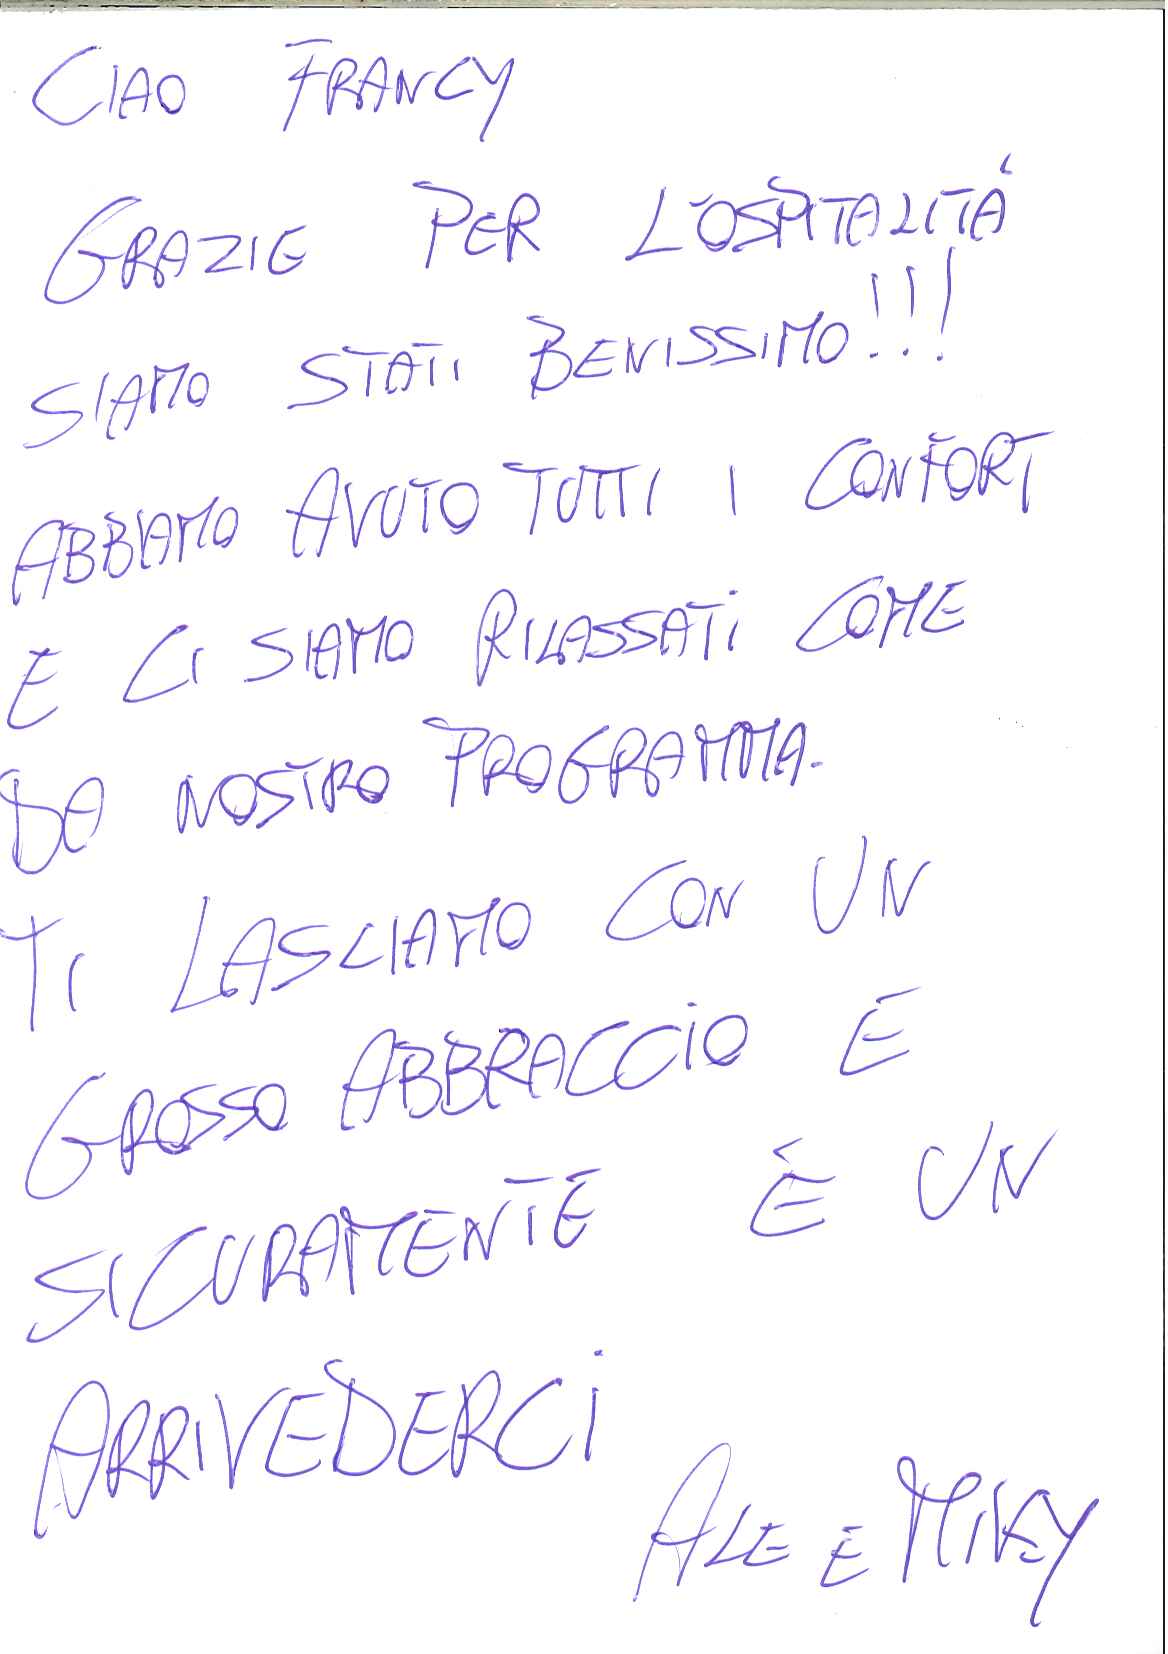 CIAO FRANCY
GRAZIE PER L'OSPITALITÁ
SIAMO STATI BENISSIMO!!!
ABBIAMO AVUTO TUTTI I CONFORT
E CI SIAMO RILASSATI COME
DA NOSTRO PROGRAMMA.
TI LASCIAMO CON UN
GROSSO ABBRACCIO E
SICURAMENTE È UN
ARRIVEDERCI
ALE E MIKY